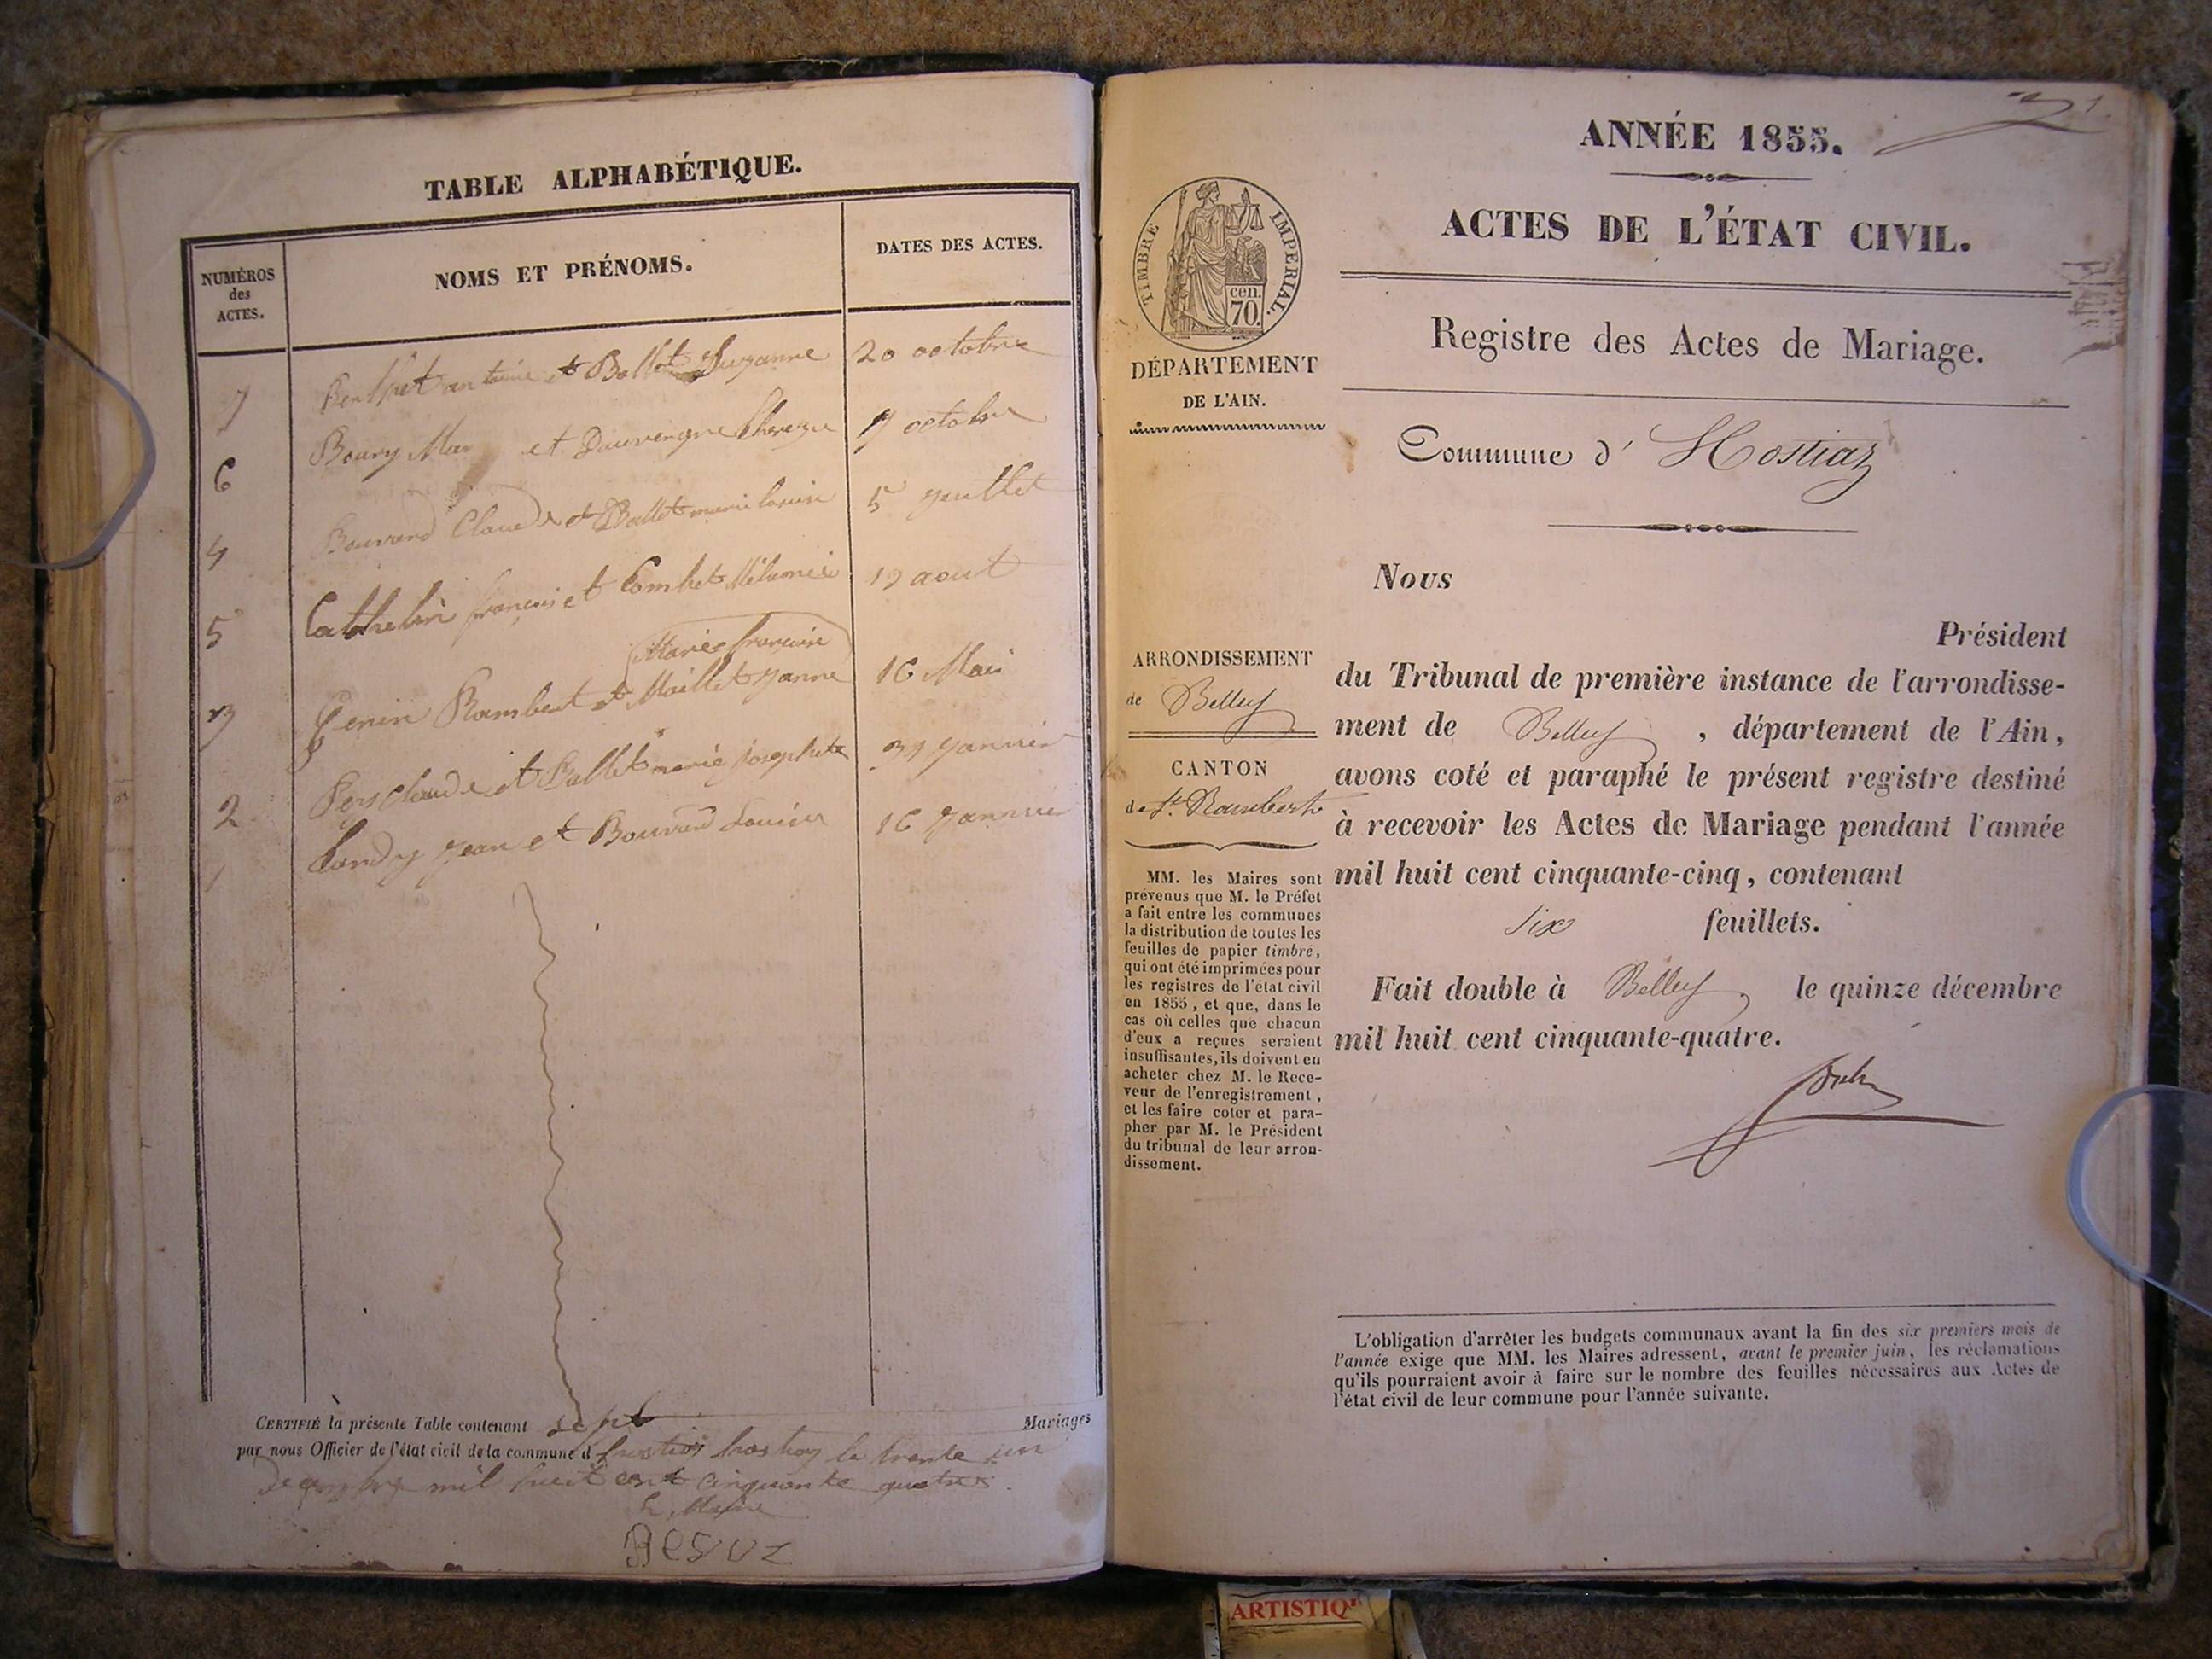 TABLE ALPHABÉTIQUE.
NUMÉROS
des
ACTES.
NOMS ET PRÉNOMS.
DATES DES ACTES.
7 antoine et Ballet Suzanne 20 octobre
6 Boury Mar et Dauvergne 9 octobre
4 Bouvard Claude et Ballet marie louise 5 Juillet
5 Cathelin françois et Combet Mélanie 19 aout
Marie françoise
3 Genin Rambert et Maillet Janne 16 Mai
2 claude et Ballet marie josephte 31 Janvier
1 Landy Jean et Bouvard Louise 16 Janvier
CERTIFIÉ la présente Table contenant sept Mariages
par nous Officier de l'état civil de la commune d' hostiaz hostiaz le trente un
Decembre mil huit cent cinquante quatre
Le Maire
ANNÉE 1855.
ACTES DE L'ÉTAT CIVIL.
TIMBRE IMPERIAL.
cen.
70.
DÉPARTEMENT
DE L'AIN.
Registre des Actes de Mariage.
Commune d' Hostiaz
Nous
Président
du Tribunal de première instance de l'arrondisse-
ment de Belley , département de l'Ain,
avons coté et paraphé le présent registre destiné
à recevoir les Actes de Mariage pendant l'année
mil huit cent cinquante-cinq, contenant
six feuillets.
Fait double à Belley, le quinze décembre
mil huit cent cinquante-quatre.
ARRONDISSEMENT
de Belley
CANTON
de St. Rambert
MM. les Maires sont
prévenus que M. le Préfet
a fait entre les communes
la distribution de toutes les
feuilles de papier timbré,
qui ont été imprimées pour
les registres de l'état civil
en 1855, et que, dans le
cas où celles que chacun
d'eux a reçues seraient
insuffisantes, ils doivent en
acheter chez M. le Rece-
veur de l'enregistrement,
et les faire coter et para-
pher par M. le Président
du tribunal de leur arron-
dissement.
L'obligation d'arrêter les budgets communaux avant la fin des six premiers mois de
l'année exige que MM. les Maires adressent, avant le premier juin, les réclamations
qu'ils pourraient avoir à faire sur le nombre des feuilles nécessaires aux Actes de
l'état civil de leur commune pour l'année suivante.
ARTISTIQ